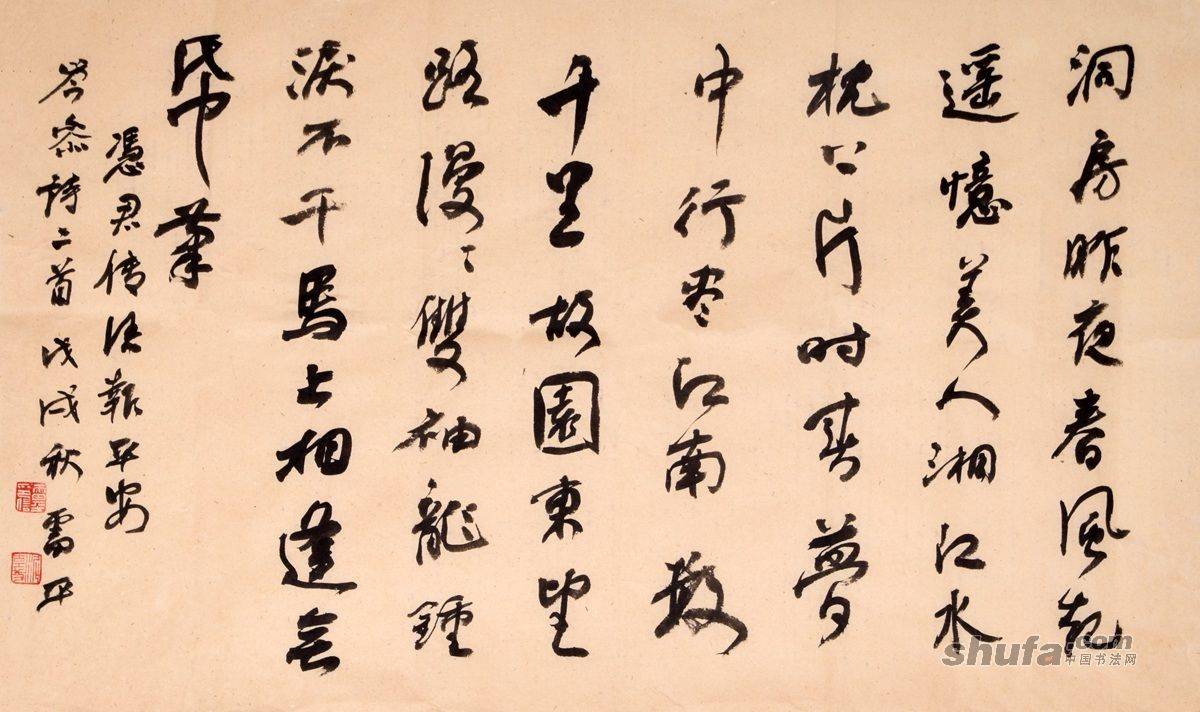 洞房昨夜春風起
遥憶美人湘江水
枕上片时春夢
中行尽江南數
千里故園東望
路漫〻雙袖龍鍾
淚不干馬上相逢無
帋筆
憑君传语報平安
岑參詩二首戊戌秋雷平
shufa.com
中国书法网